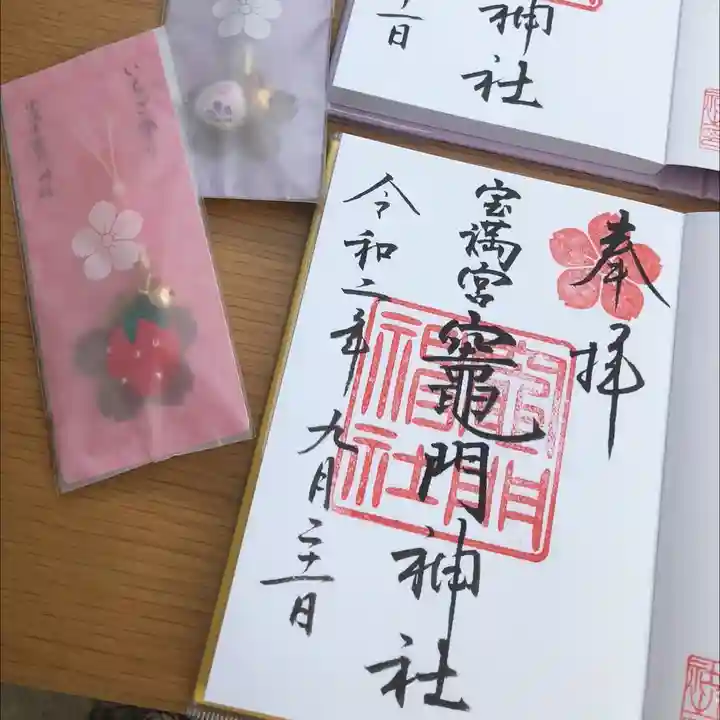 奉拝
宝満宮
竈門神社
令和二年九月二十一日
竈門神社
神社
十一日